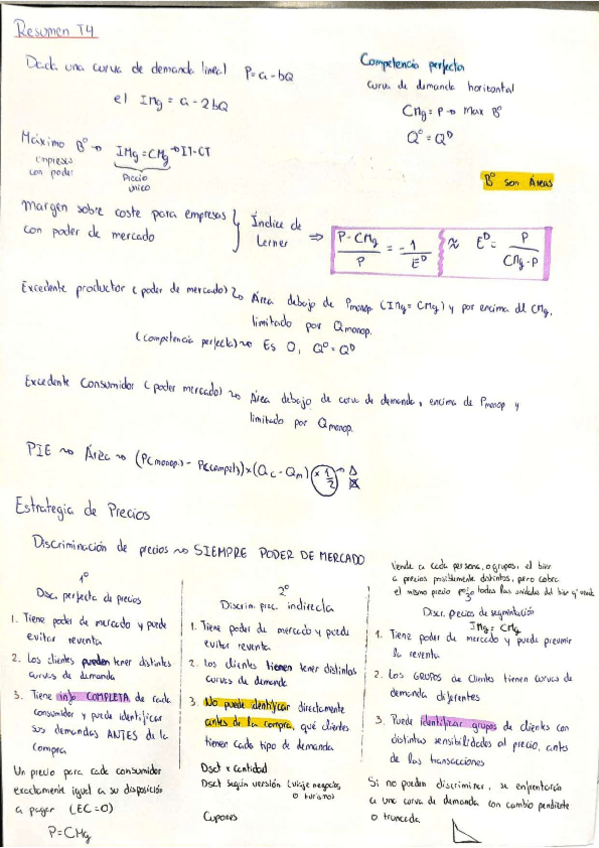 Resumen T4
Dada una curva de demanda lineal P = a - bQ
el IMg = a - 2bQ
Competencia perfecta
curva de demanda horizontal
CMg = P → Max Bº
Qº = Qᴰ
Máximo Bº → IMg = CMg → IT-CT
empresas
con poder
Precio
único
Bº son Áreas
Margen sobre coste para empresas
con poder de mercado
Índice de
Lerner
⇒ P - CMg / P = -1 / Eᴰ ≈ Eᴰ = P / CMg - P
Excedente productor (poder de mercado) ~ Área debajo de Pmonop (IMg = CMg) y por encima del CMg,
limitado por Qmonop.
(competencia perfecta) ~ Es 0, Qº = Qᴰ
Excedente Consumidor (poder mercado) ~ Área debajo de curva de demanda, encima de Pmonop y
limitado por Qmonop.
PIE ~ Área ~ (P(monop.) - P(compet.)) × (Qc - Qm) × 1/2 → Δ
Estrategia de Precios
Discriminación de precios ~ SIEMPRE PODER DE MERCADO
1º
Disc. perfecta de precios
1. Tiene poder de mercado y puede
evitar reventa
2. Los clientes pueden tener distintas
curvas de demanda
3. Tiene info COMPLETA de cada
consumidor y puede identificar
sus demandas ANTES de la
compra
Un precio para cada consumidor
exactamente igual a su disposición
a pagar (EC=0)
P = CMg
2º
Discrim. prec. indirecta
1. Tiene poder de mercado y puede
evitar reventa
2. Los clientes tienen tener distintas
curvas de demanda
3. No puede identificar directamente
antes de la compra, qué clientes
tienen cada tipo de demanda
Dsct x cantidad
Dsct según versión (viaje negocios,
o turismo)
Cupones
Vende a cada persona, o grupos, el bien
a precios posiblemente distintos, pero cobra
el mismo precio por todas las unidades del bien q' vende
3º
Discr. precios de segmentación
IMg = CMg
1. Tiene poder de mercado y puede prevenir
la reventa
2. Los GRUPOS de Clientes tienen curvas de
demanda diferentes
3. Puede identificar grupos de clientes con
distintas sensibilidades al precio, antes
de las transacciones
Si no pueden discriminar, se enfrentarán
a una curva de demanda con cambio pendiente
o truncada